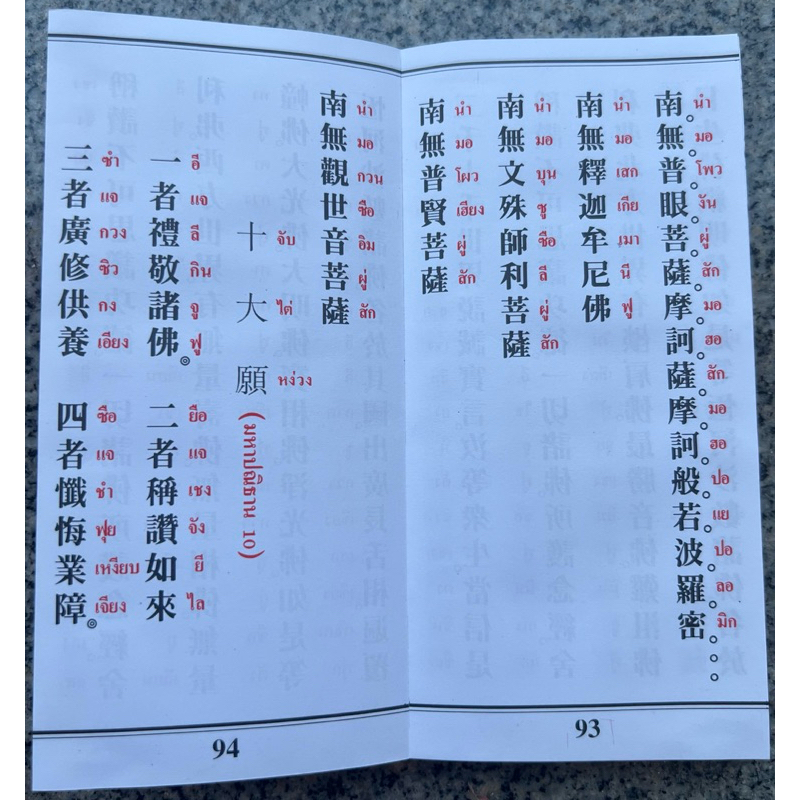 南。無。普。眼。菩。薩。摩。訶。薩。摩。訶。般。若。波。羅。密。。。
นำ มอ โพว งัน ผู่ สัก มอ ฮอ สัก มอ ฮอ ปอ แย ปอ ลอ มิก
南無釋迦牟尼佛
นำ มอ เสก เกีย เมา นี ฟู
南無文殊師利菩薩
นำ มอ บุน ซู ซือ ลี ผู่ สัก
南無普賢菩薩
นำ มอ โผว เฮียง ผู่ สัก
93
南無觀世音菩薩
นำ มอ กวน ซือ อิม ผู่ สัก
十大願 (มหาปณิธาน 10)
จับ ไต่ หง่วง
一者禮敬諸佛。 二者稱讚如來
อี แจ ลี กิน จู ฟู ยือ แจ เชง จัง ยี ไล
三者廣修供養 四者懺悔業障。
ซำ แจ กวง ซิว กง เอียง ซือ แจ ชำ ฟุย เหงียบ เจียง
94